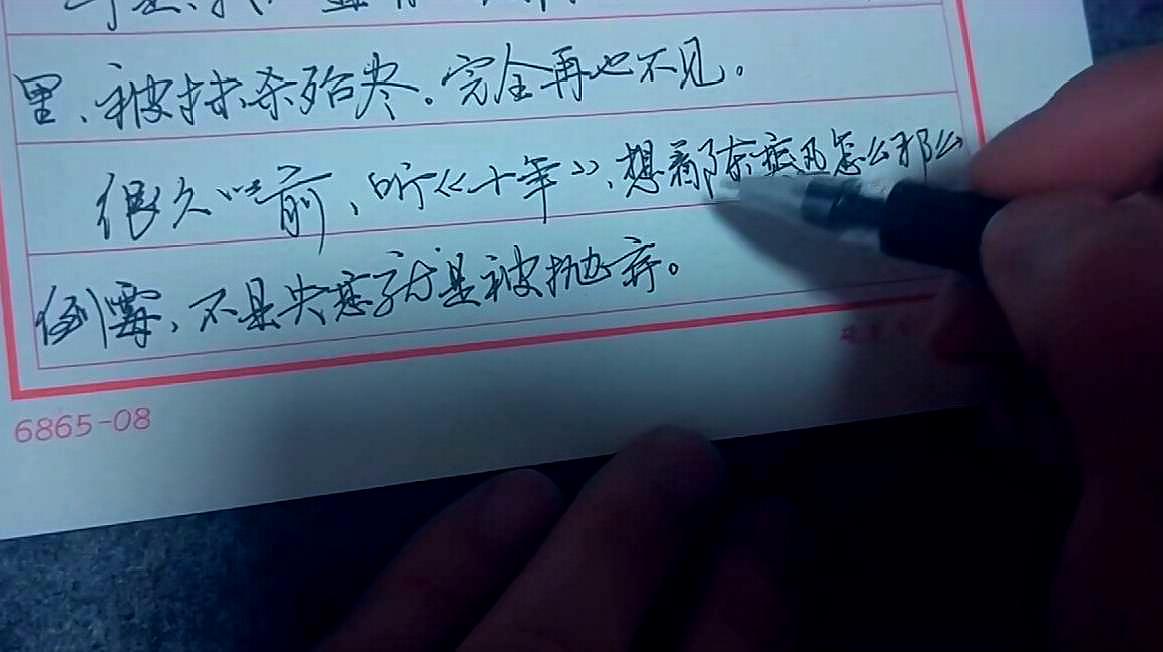 里、被抹杀殆尽。完全再也不见。
很久以前、听《十年》、想着陈奕迅怎么那么
倒霉、不是失恋就是被抛弃。
6865-08